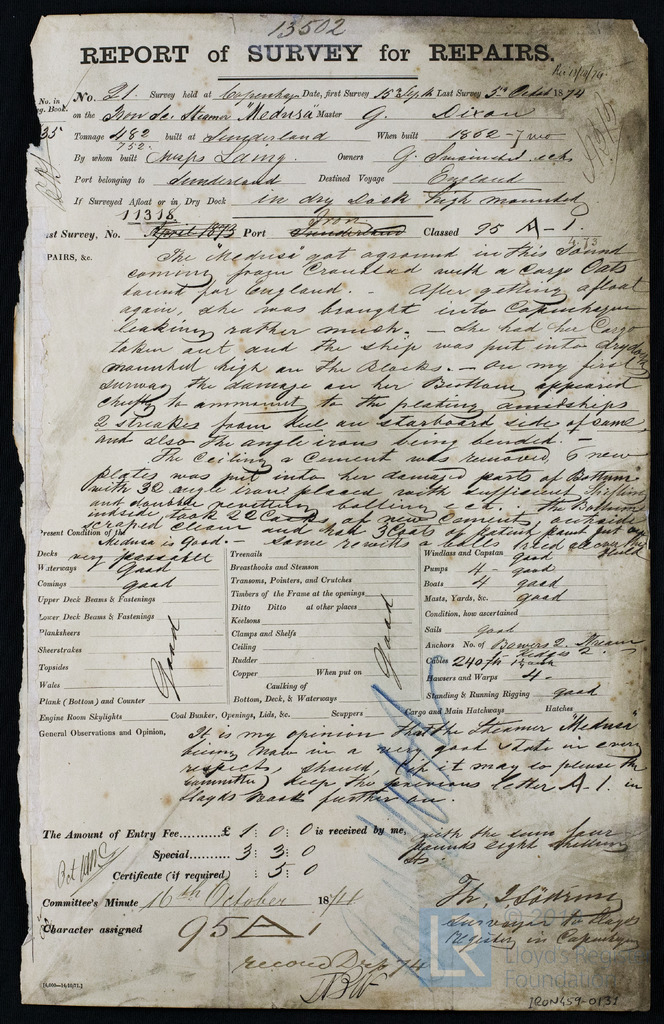 13502
REPORT of SURVEY for REPAIRS.
No. in Reg. Book.
No. 21. Survey held at Copenhagen Date, first Survey 15th Septb Last Survey 5th Octob 1874
35 on the Iron Sc. Steamer "Medusa" Master G. Dixon
Tonnage 482 built at Sunderland When built 1862 - 7 mo
752.
By whom built Messrs Laing. Owners G.
Port belonging to Sunderland Destined Voyage England
If Surveyed Afloat or in Dry Dock in dry Dock high mounted
11318 Iron
Last Survey, No. April 1873 Port Sunderland Classed 95 A-1.
4.73
REPAIRS, &c. The "Medusa" got aground in this Sound
coming from Cronstad with a Cargo Oats
bound for England. - After getting afloat
again, she was brought into Copenhagen
leaking rather much. - She had her Cargo
taken out and the ship was put into drydock
mounted high on the Blocks. - On my first
survey the damage on her Bottom appeared
chiefly to ammount to the plating amidships
2 streakes from keel on starboard side of same
and also the angle irons being bended. -
The Ceiling & Cement was removed, 6 new
plates was put into her damaged parts of Bottom
with 32 angle irons placed with sufficient
and double revetting bolting &c. The Bottom
indside took 22 Casks of new Cement, outside
scraped clean and had 3 Coats of patent paint put on.
Present Condition of the
Medusa is Good. -
Decks very passable
Waterways Good
Comings good
Upper Deck Beams & Fastenings
Lower Deck Beams & Fastenings
Planksheers
Sheerstrakes
Topsides
Wales
Plank (Bottom) and Counter
Good
Engine Room Skylights
Treenails
Breasthooks and Stemson
Transoms, Pointers, and Crutches
Timbers of the Frame at the openings
Ditto Ditto at other places
Keelsons
Clamps and Shelfs
Ceiling
Rudder
Copper When put on
Caulking of
Bottom, Deck, & Waterways
Good
Coal Bunker, Openings, Lids, &c. Scuppers
Windlass and Capstan good
Pumps 4 - good
Boats 4 good
Masts, Yards, &c. good
Condition, how ascertained
Sails good
Anchors No. of Bowers 2. Stream
Kedges 2.
Cables 240 fth
Hawsers and Warps 4 -
Standing & Running Rigging good
Cargo and Main Hatchways Hatches
General Observations and Opinion, It is my opinion that the Steamer "Medusa"
being now in a very good state in every
respect should (if it may so please the
Committee) keep the previous letter A-1. in
Lloyds Book further on.
The Amount of Entry Fee......... £ 1 : 0 : 0 is received by me,
with the sum four
pounds eight shillings
Special...... 3 : 3 : 0
Certificate (if required) : 5 : 0
Committee's Minute 16th October 1874
Character assigned 95 A 1
Surveyor to Lloyds
Register in Copenhagen
74
[4,000-14/10/71.]
© 20
Lloyd's Register
Foundation
IRON459-0131